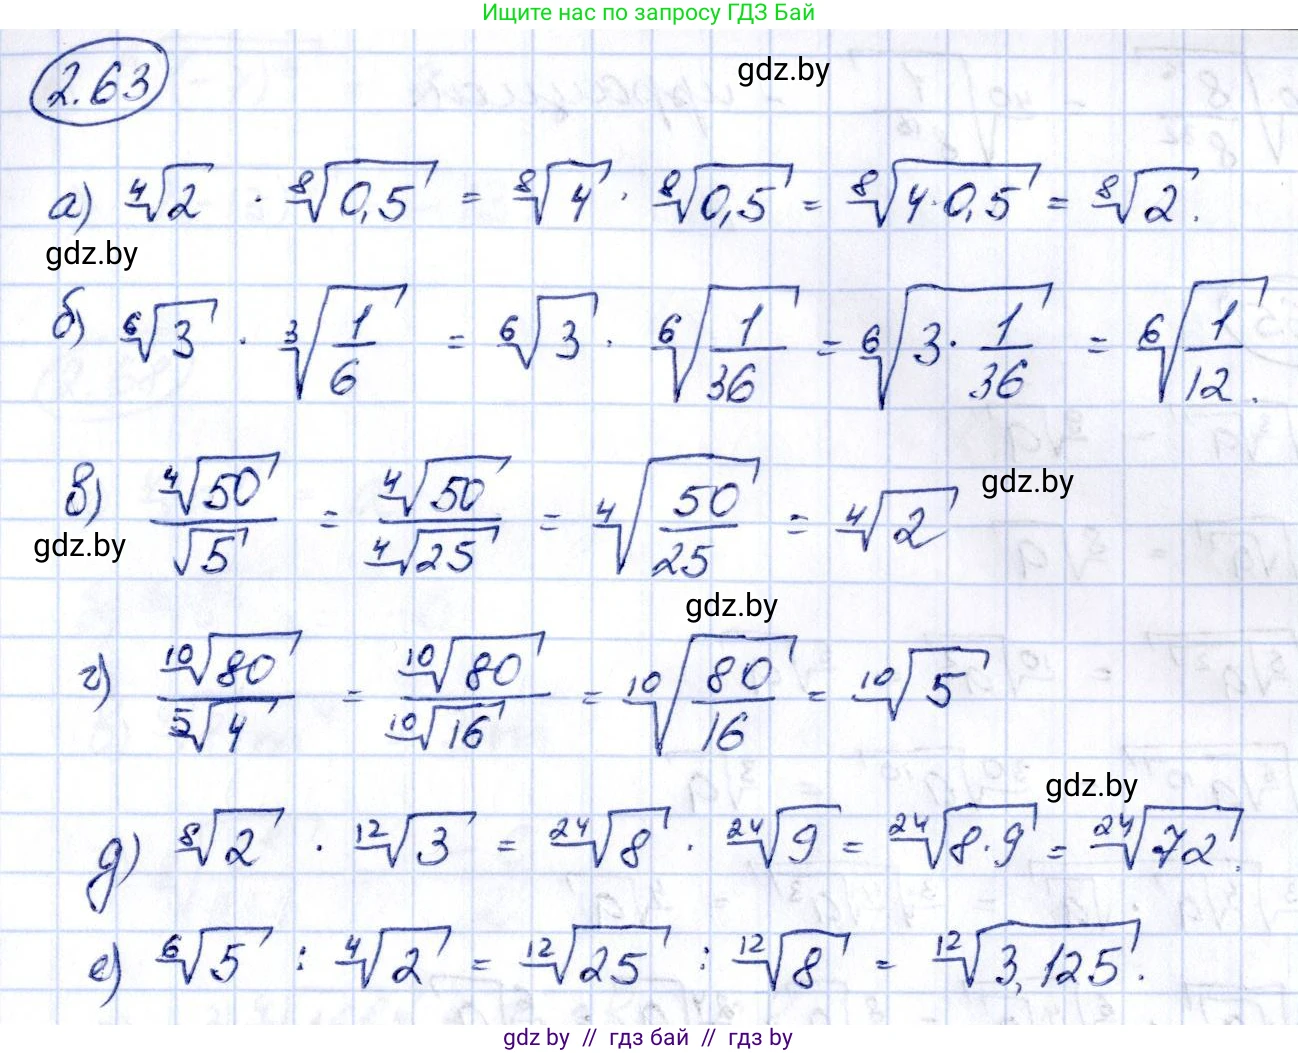 Ищите нас по запросу ГДЗ Бай
2.63
gdz.by
а) ⁴√2 · ⁸√0,5 = ⁸√4 · ⁸√0,5 = ⁸√(4·0,5) = ⁸√2.
gdz.by
б) ⁶√3 · ³√(1/6) = ⁶√3 · ⁶√(1/36) = ⁶√(3·1/36) = ⁶√(1/12).
в) ⁴√50/√5 = ⁴√50/⁴√25 = ⁴√(50/25) = ⁴√2
gdz.by
gdz.by
gdz.by
г) ¹⁰√80/⁵√4 = ¹⁰√80/¹⁰√16 = ¹⁰√(80/16) = ¹⁰√5
gdz.by
д) ⁸√2 · ¹²√3 = ²⁴√8 · ²⁴√9 = ²⁴√(8·9) = ²⁴√72.
е) ⁶√5 : ⁴√2 = ¹²√25 : ¹²√8 = ¹²√3,125.
gdz.by // гдз бай // гдз by